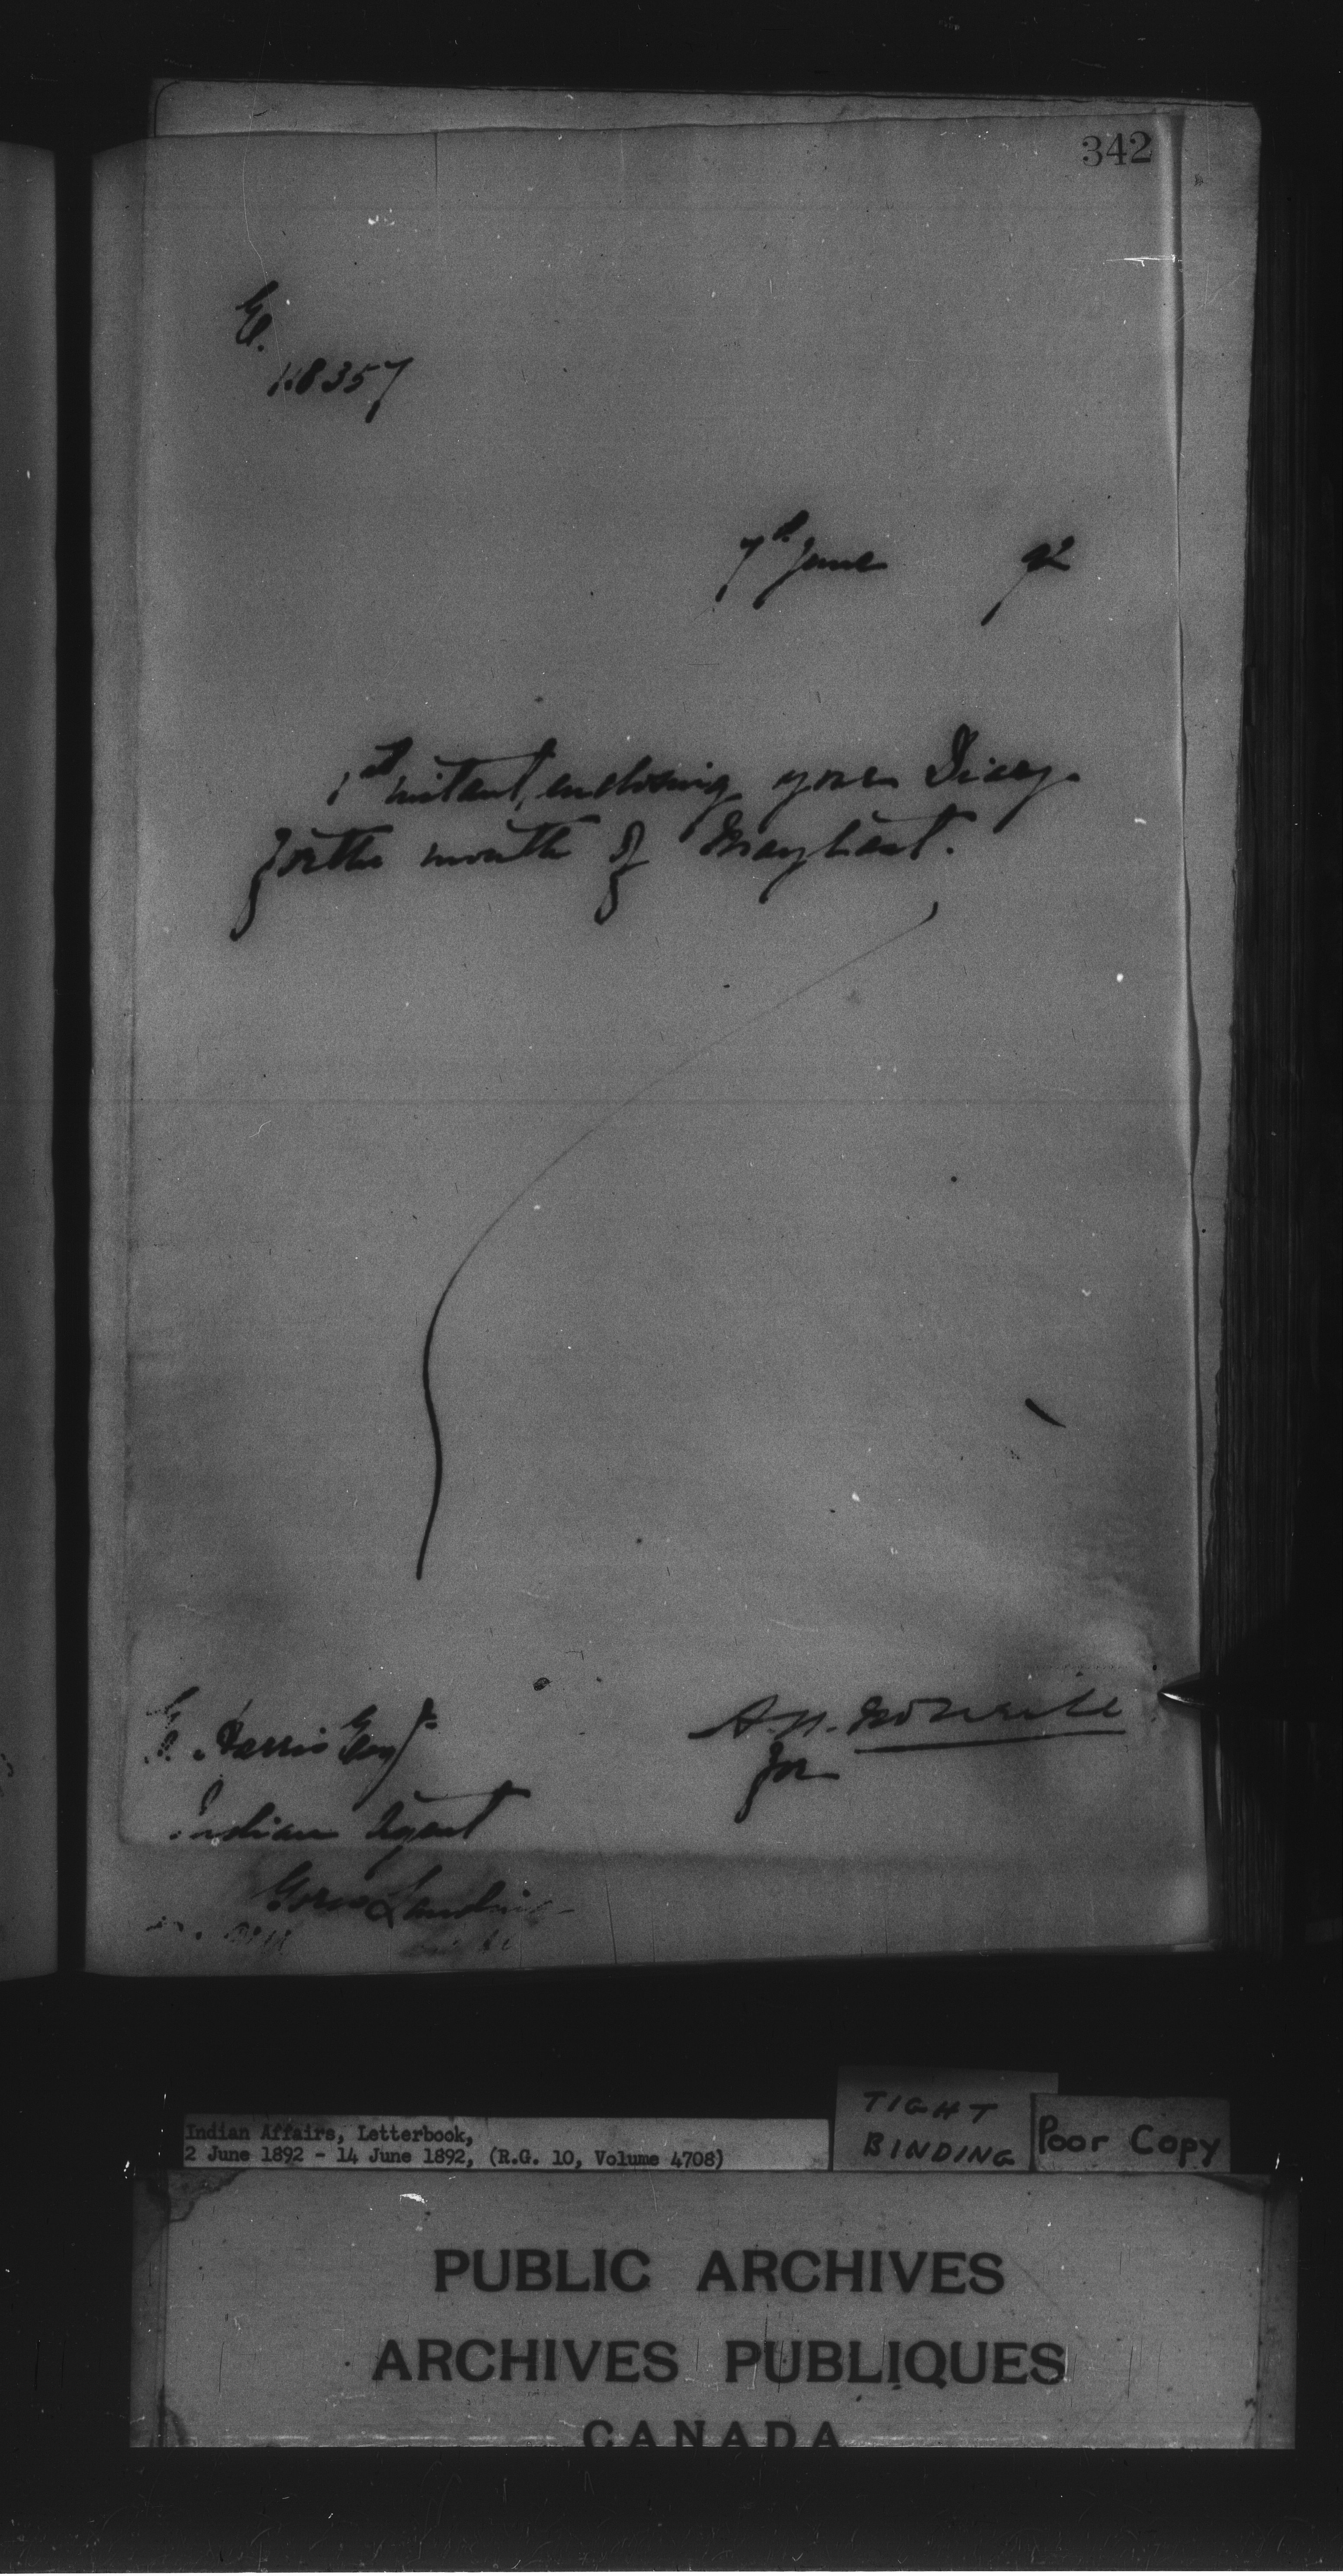 342
E.
118357
7th June 92
1st instant, enclosing your Diary
for the month of May last.
A. N. McNeill
for
E. Harris Esqr
Indian Agent
Gores Landing
Indian Affairs, Letterbook,
2 June 1892 - 14 June 1892, (R.G. 10, Volume 4708)
TIGHT
BINDING
Poor Copy
PUBLIC ARCHIVES
ARCHIVES PUBLIQUES
CANADA